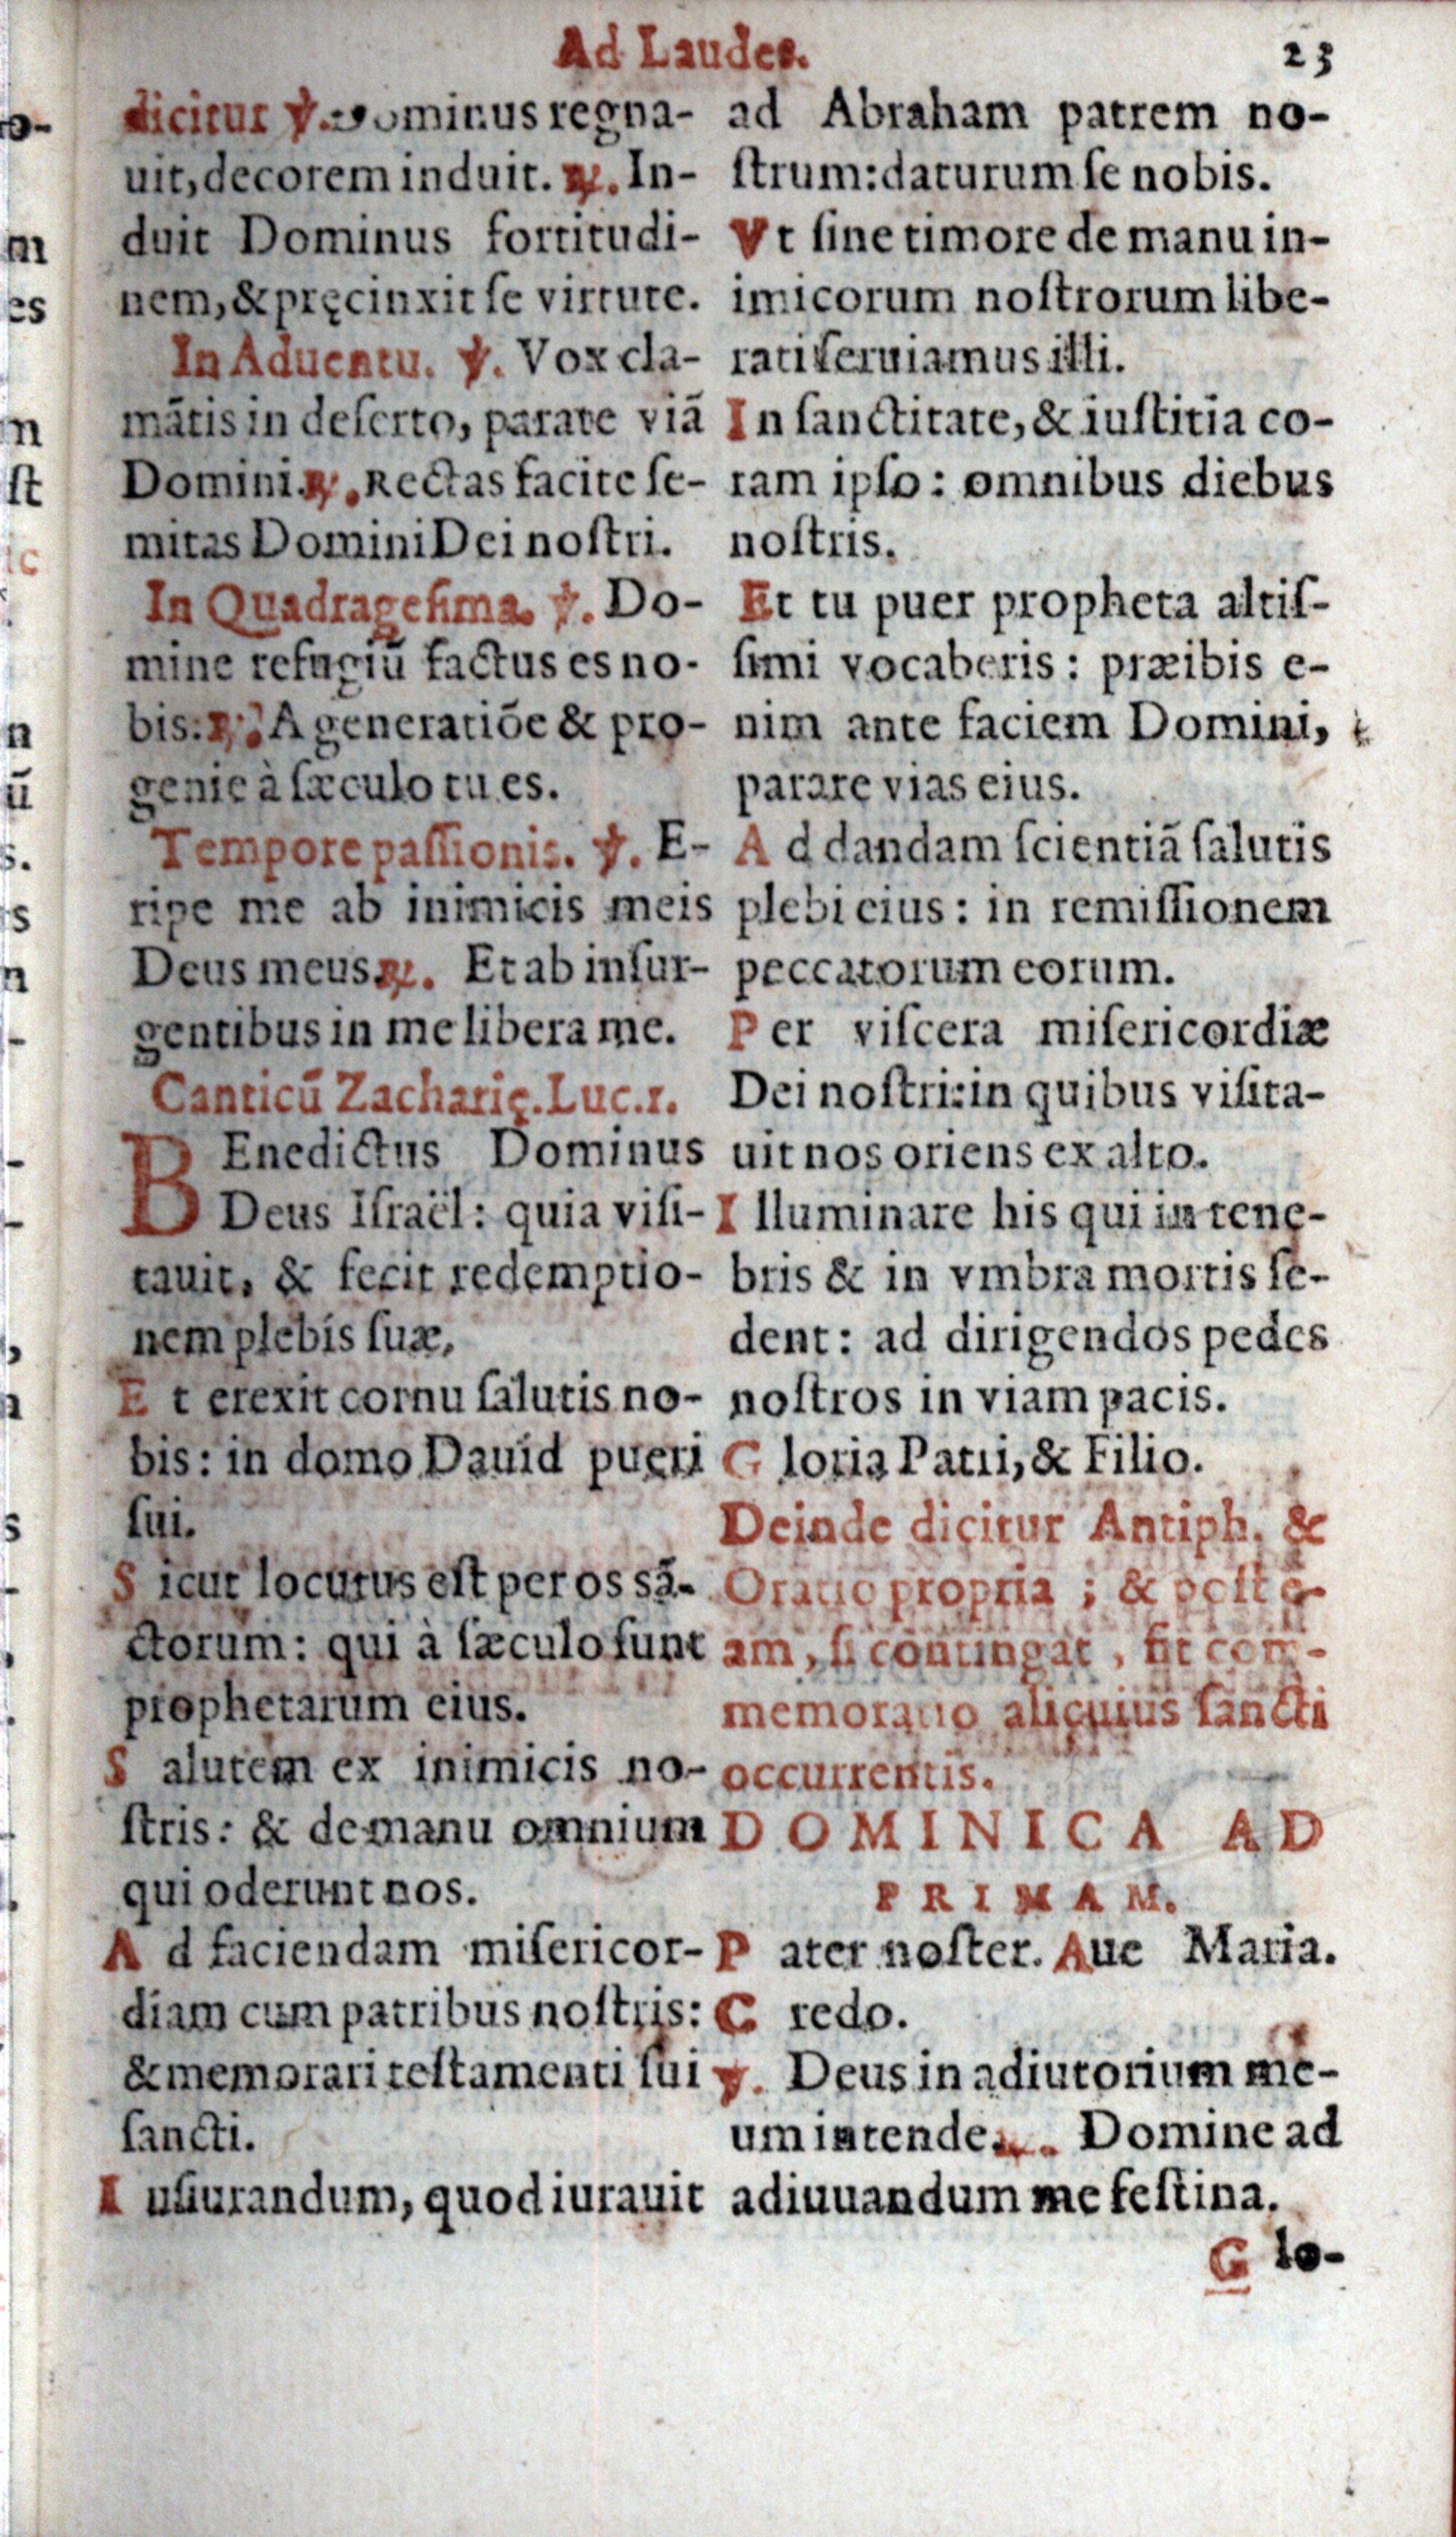 Ad Laudes. 23
dicitur ℣. Dominus regna-
uit, decorem induit. ℟. In-
duit Dominus fortitudi-
nem, & pręcinxit ſe virtute.
In Aduentu. ℣. Vox cla-
mãtis in deſerto, parate viã
Domini. ℟. Rectas facite ſe-
mitas Domini Dei noſtri.
In Quadrageſima. ℣. Do-
mine refugiũ factus es no-
bis: ℟. A generatiõe & pro-
genie à ſæculo tu es.
Tempore paſſionis. ℣. E-
ripe me ab inimicis meis
Deus meus. ℟. Et ab inſur-
gentibus in me libera me.
Canticũ Zacharię. Luc. 1.
BEnedictus Dominus
Deus Iſraël: quia viſi-
tauit, & fecit redemptio-
nem plebis ſuæ,
Et erexit cornu ſalutis no-
bis: in domo Dauid pueri
ſui.
Sicut locutus eſt per os sã-
ctorum: qui à ſæculo ſunt
prophetarum eius.
Salutem ex inimicis no-
ſtris: & de manu omnium
qui oderunt nos.
Ad faciendam miſericor-
diam cum patribus noſtris:
& memorari teſtamenti ſui
ſancti.
Iuſiurandum, quod iurauit
ad Abraham patrem no-
ſtrum: daturum ſe nobis.
Vt ſine timore de manu in-
imicorum noſtrorum libe-
rati ſeruiamus illi.
In ſanctitate, & iuſtitia co-
ram ipſo: omnibus diebus
noſtris.
Et tu puer propheta altiſ-
ſimi vocaberis: præibis e-
nim ante faciem Domini,
parare vias eius.
Ad dandam ſcientiã ſalutis
plebi eius: in remiſſionem
peccatorum eorum.
Per viſcera miſericordiæ
Dei noſtri: in quibus viſita-
uit nos oriens ex alto.
Illuminare his qui in tene-
bris & in vmbra mortis ſe-
dent: ad dirigendos pedes
noſtros in viam pacis.
Gloria Patri, & Filio.
Deinde dicitur Antiph. &
Oratio propria; & poſt e-
am, ſi contingat, fit com-
memoratio alicuius ſancti
occurrentis.
DOMINICA AD
PRIMAM.
Pater noſter. Aue Maria.
Credo.
℣. Deus in adiutorium me-
um intende. Domine ad
adiuuandum me feſtina.
Glo-